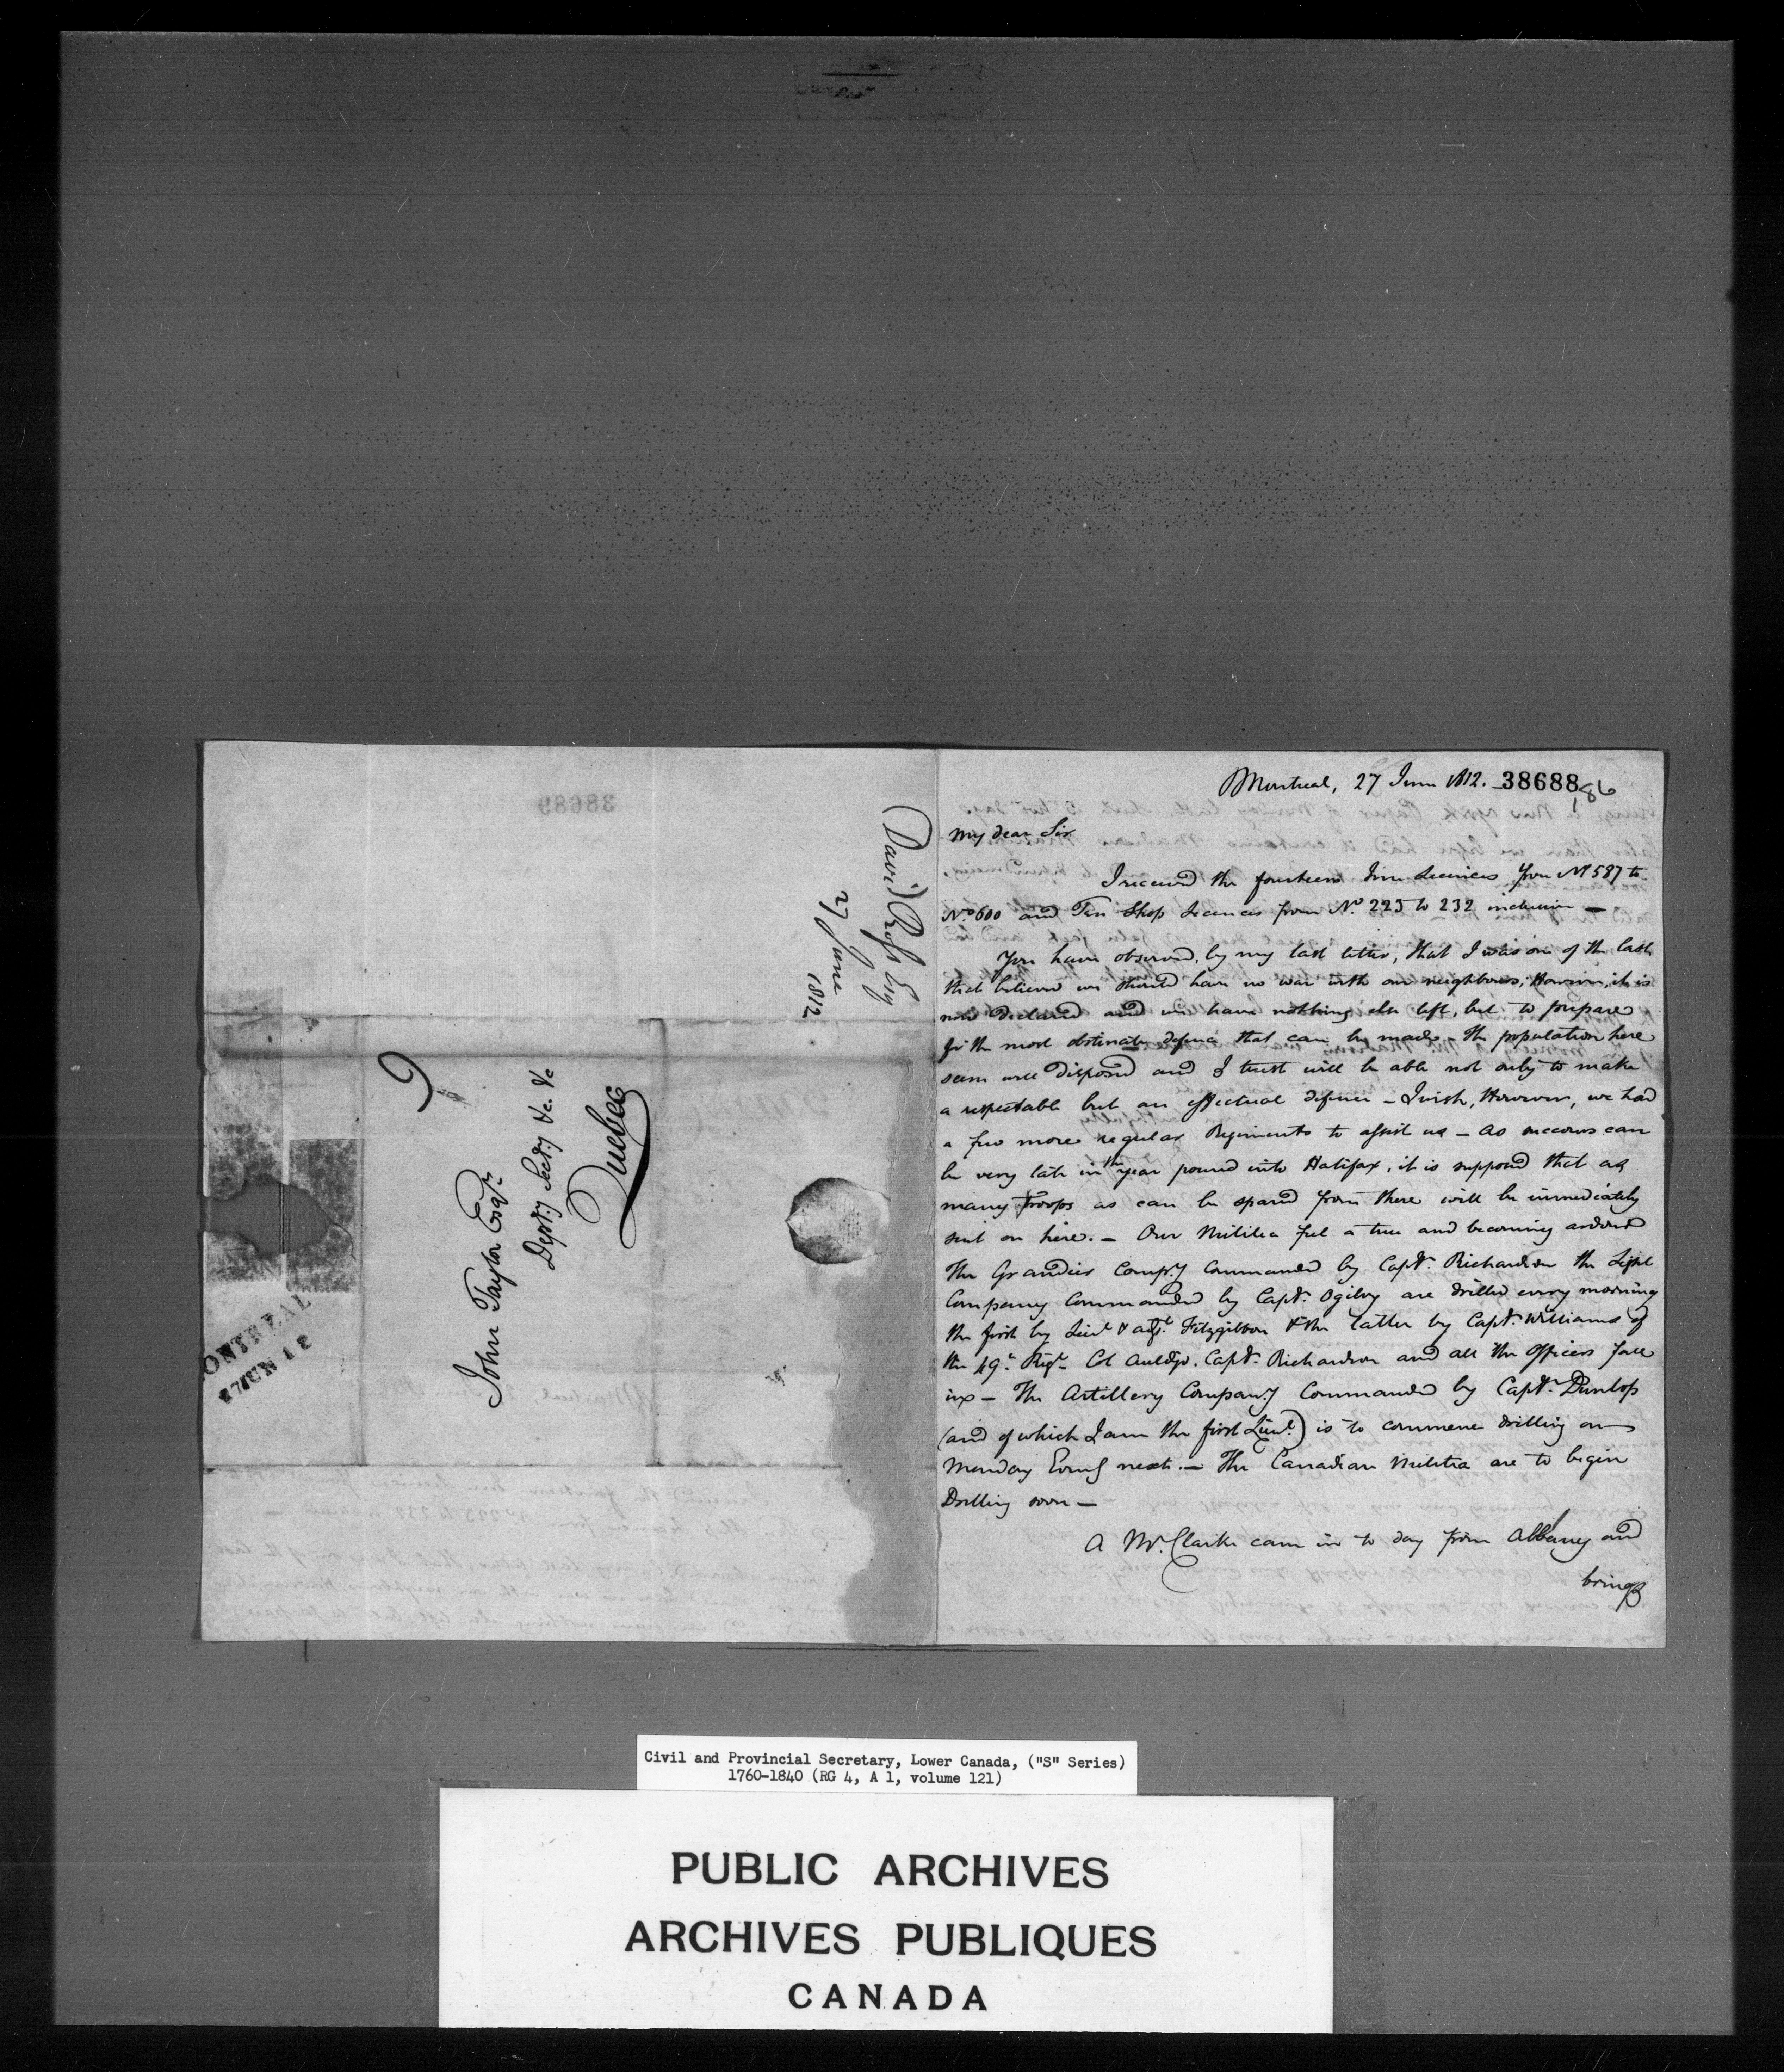 Montreal, 27 June 1812. 38688
186
My dear Sir
I received the fourteen Inn Licences from Nº 587 to
Nº 600 and Ten Shop Licences from Nº 223 to 232 inclusive —
You have observed, by my last letter, that I was one of the last
that believed we should have no war with our neighbours; However, it is
now declared and we have nothing else left, but to prepare
for the most obstinate defence that can be made – The population here
seem well disposed and I trust will be able not only to make
a respectable but an effectual defence – I wish, However, we had
a few more regular Regiments to assist us – As succours can
be very late in the year poured into Halifax, it is supposed that as
many Troops as can be spared from there will be immediately
sent on here. – Our Militia feel a true and becoming ardour
The Granadier Compy. Commanded by Capt. Richardson the Light
Company Commanded by Capt. Ogilvy are drilled every morning
the first by Lieut & adjt. Fitzgibbon & the latter by Capt. Williams of
the 49th Regt. Col Auldjo. Capt. Richardson and all the Officers fall
in – The Artillery Company Commanded by Capt. Dunlop
(and of which I am the first Lieut.) is to commence drilling on
Monday Eveng next. — The Canadian Militia are to begin
Drilling soon —
A Mr. Clarke came in to day from Albany and
brings
David Ross Esq
27 June
1812
9
John Taylor Esqr.
Depty. Secty. &c. &c
Quebec
ONTREAL
27 JUN 12
38689
Civil and Provincial Secretary, Lower Canada, ("S" Series)
1760-1840 (RG 4, A 1, volume 121)
PUBLIC ARCHIVES
ARCHIVES PUBLIQUES
CANADA